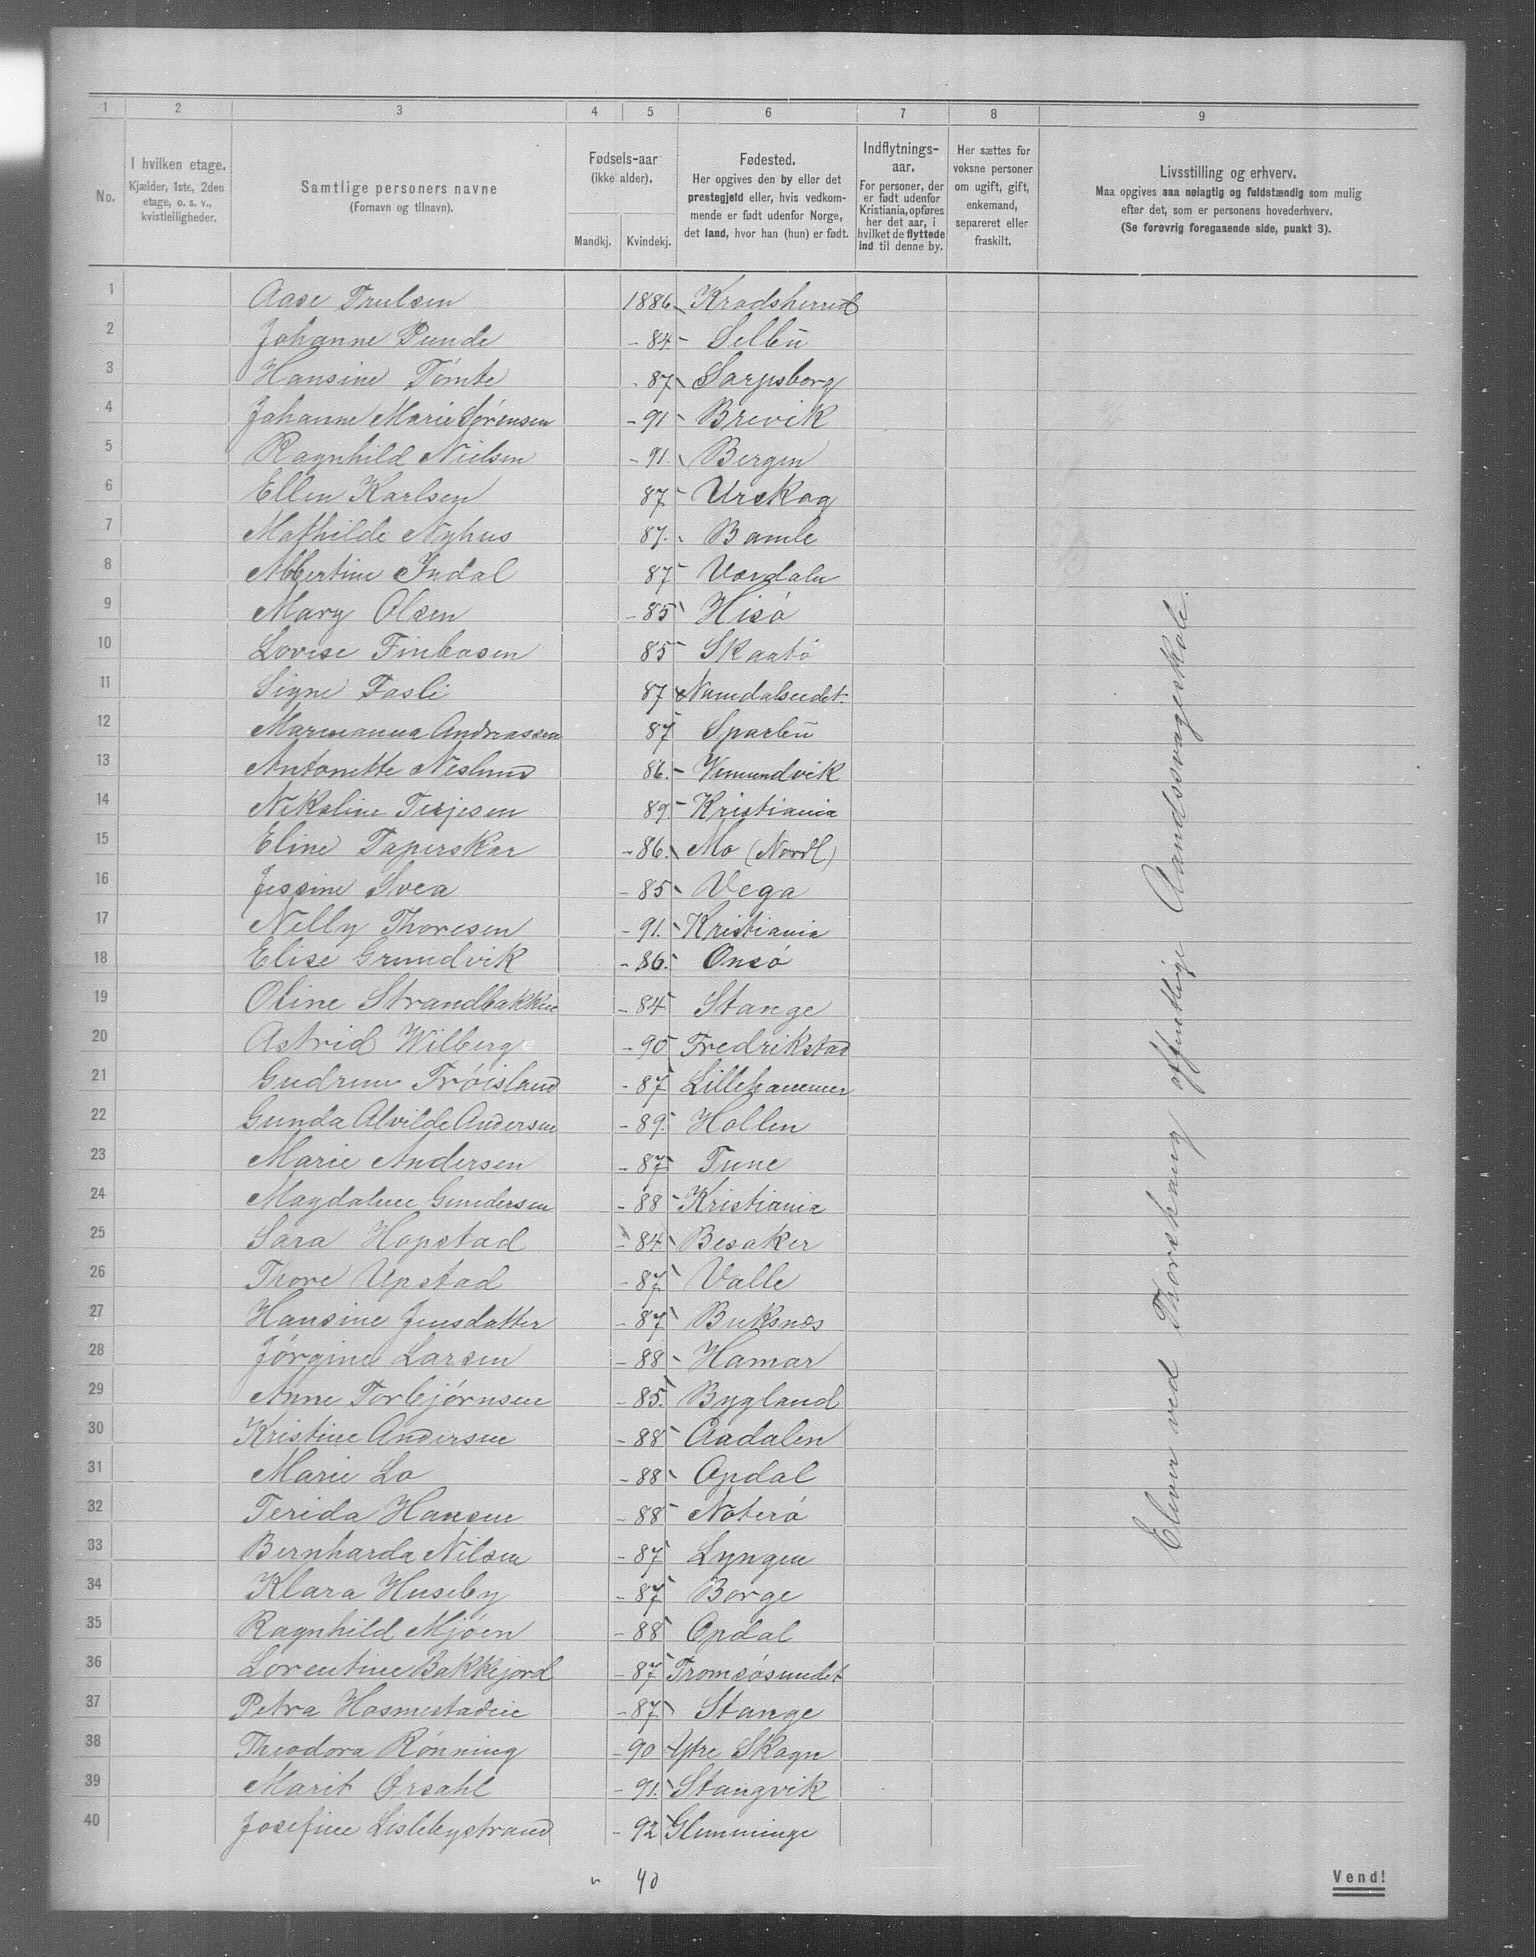 1 2 3 4 5 6 7 8 9
No.
I hvilken etage.
Kjælder, 1ste, 2den
etage, o. s. v.,
kvistleiligheder.
Samtlige personers navne
(Fornavn og tilnavn).
Fødsels-aar
(ikke alder).
Mandkj. Kvindekj.
Fødested.
Her opgives den by eller det
prestegjeld eller, hvis vedkom-
mende er født udenfor Norge,
det land, hvor han (hun) er født.
Indflytnings-
aar.
For personer, der
er født udenfor
Kristiania, opføres
her det aar, i
hvilket de flyttede
ind til denne by.
Her sættes for
voksne personer
om ugift, gift,
enkemand,
separeret eller
fraskilt.
Livsstilling og erhverv.
Maa opgives saa nøiagtig og fuldstændig som mulig
efter det, som er personens hovederhverv.
(Se forøvrig foregaaende side, punkt 3).
1 Aase Trulsen 1886 Kradsherred
2 Johanne Punde - 84 - Selbu
3 Hansine Tømte - 87 Sarpsborg
4 Johanne Marie Sørensen - 91 - Brevik
5 Ragnhild Nielsen - 91. Bergen
6 Ellen Karlsen 87 - Urskog
7 Mathilde Nyhus 87. Bamle
8 Albertine Indal 87 - Værdalen
9 Mary Olsen - 85 Hisø
10 Lovise Finbosen 85 - Skaatø
11 Signe Fasli 87 Namdalseidet.
12 Marmanna Andreassen 87 Sparbu
13 Antonette Neslund 86. - Vemundvik
14 Nikoline Terjesen 89 - Kristiania
15 Eline Taperskar - 86. Mo (Nordl)
16 Jessine Svea - 85 Vega
17 Nelly Thoresen - 91. Kristiania
18 Elise Grundvik - 86. Onsø
19 Oline Strandbakken - 84 Stange
20 Astrid Wilberg - 90 Fredrikstad
21 Gudrun Trøisland - 87 Lillehammer
22 Gunda Alvilde Andersen - 89. Hollen
23 Marie Andersen - 87 Tune
24 Magdalene Gundersen - 88 - Kristiania
25 Sara Hopstad - 84 Besaker
26 Thore Upstad - 87 Valle
27 Hansine Jensdatter - 87 Buksnes
28 Jørgine Larsen - 88 - Hamar
29 Anne Torbjørnsen - 85. Bygland
30 Kristine Andersen - 88 Aadalen
31 Marie Lo - 88 Opdal
32 Terida Hansen - 88 Nøterø
33 Bernharda Nilsen - 87 Lyngen
34 Klara Huseby - 87 Borge
35 Ragnhild Mjøen - 88 Opdal
36 Lorentine Bakkejord - 87 Tromsøsundet
37 Petra Hosmestadeie - 87 Stange
38 Theodora Rønning - 90 Ytre Skogn
39 Marit Ørsahl - 91. Stangvik
40 Josefine Lislebystrand - 92 Glemminge
Elever ved Thorshaug offentlige Aandssvageskole.
40
Vend!